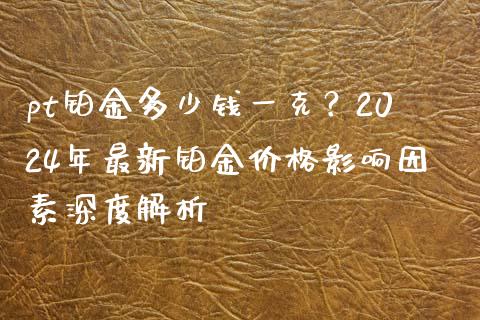 pt铂金多少钱一克？20
24年最新铂金价格影响因
素深度解析